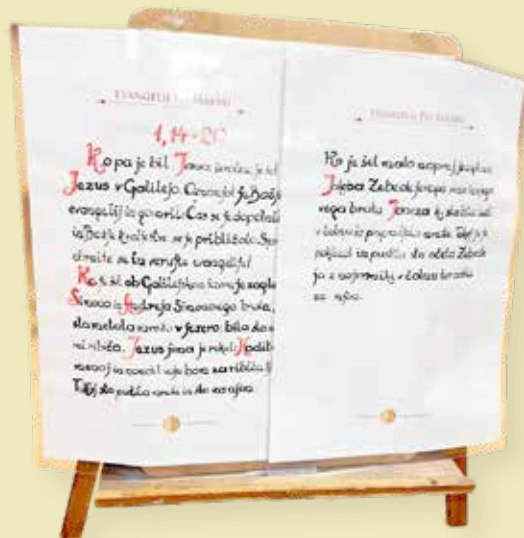 EVANGELIJ PO MARKU
1,14-20
Ko pa je bil Janez izročen, je šel
Jezus v Galilejo. Oznanjal je Božji
evangelij in govoril: Čas se je dopolnil
in Božje kraljestvo se je približalo. Spre
obrnite se in verujte evangeliju!
Ko je šel ob Galilejskem morju, je zagledal
Simona in Andreja, Simonovega brata,
sta metala mrežo v jezero; bila sta
ribiča. Jezus jima je rekel: Hodita
za menoj in naredil vaju bom za ribiča lj
Takoj sta pustila mreže in šla za njim.
EVANGELIJ PO MARKU
Ko je šel malo naprej, je zagledal
Jakoba Zebedejevega in njegovega
brata Janeza, ki sta bila tudi
v čolnu in popravljala mreže. Takoj ju je
poklical in pustila sta očeta Zebede
ja z najemniki v čolnu in odšla
za njim.